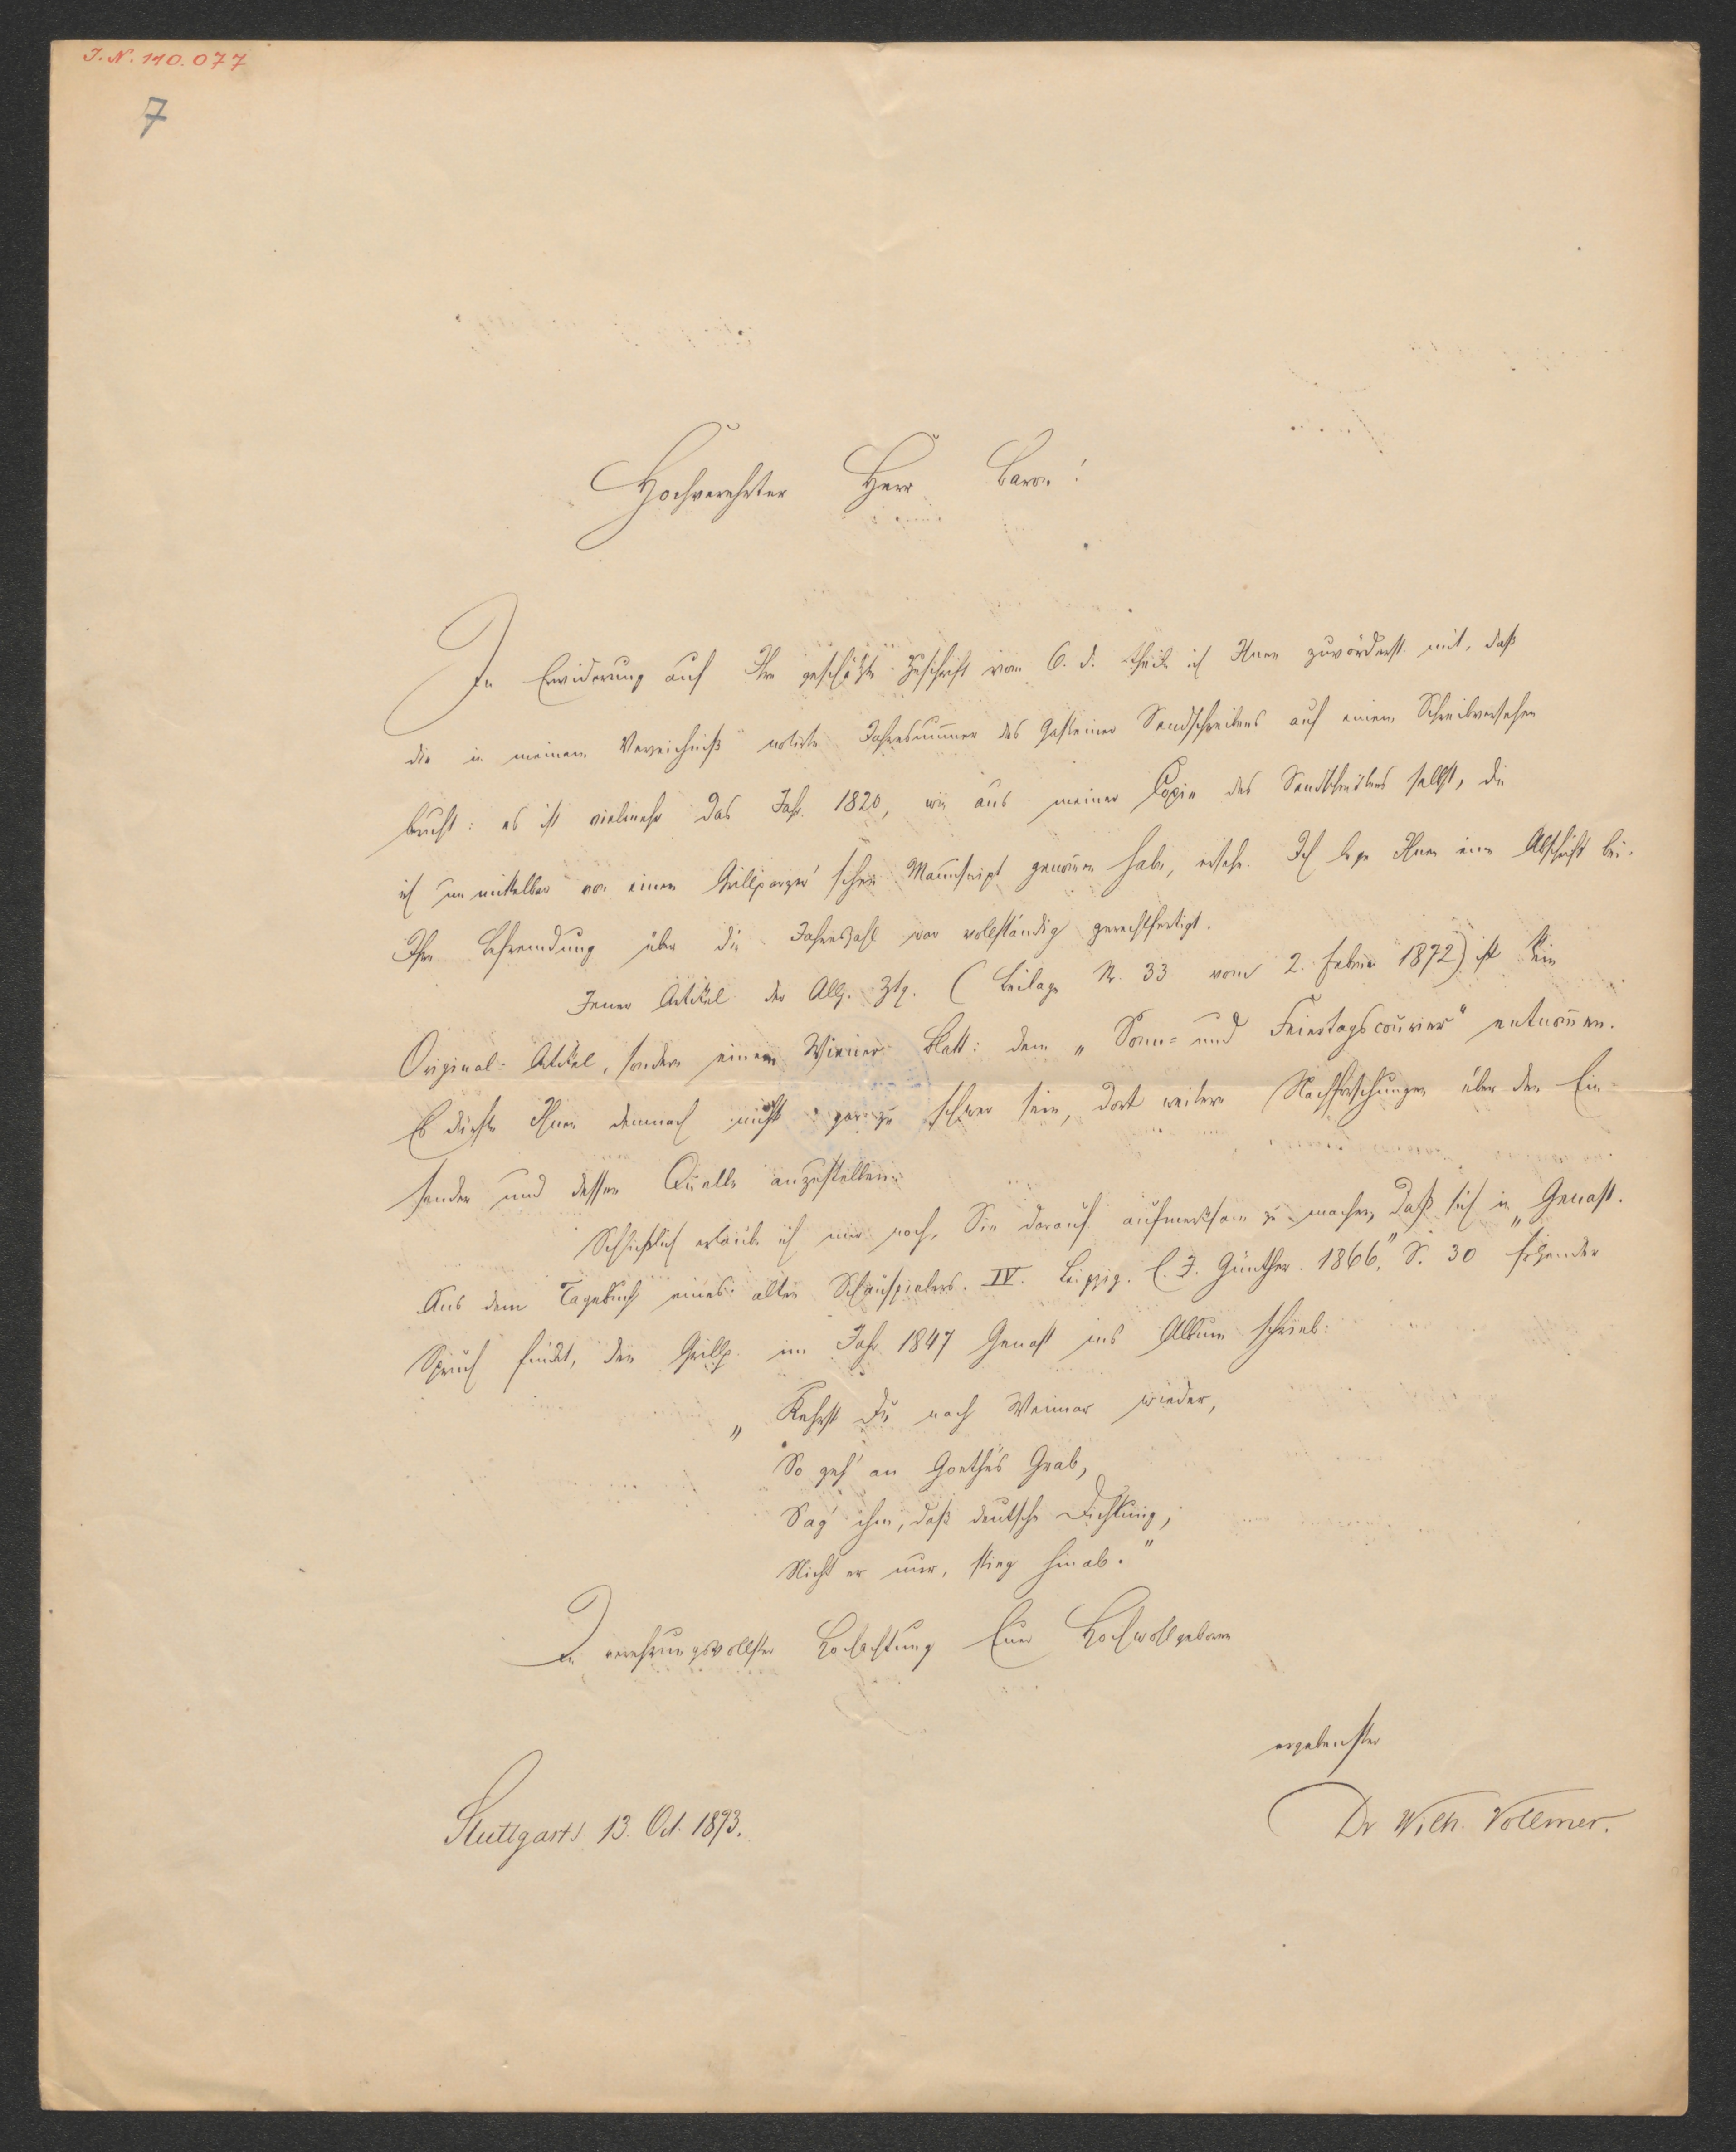 I. N. 110.077
7
Hochverehrter Herr Baron!
In Erwiderung auf Ihre geschätzte Zuschrift vom 6. d. theile ich Ihnen zuvörderst mit, daß
die in meinem Verzeichniß notirte Jahresnum̄er des Gasteiner Sendschreibens auf einem Schreibversehen
beruht: es ist vielmehr das Jahr 1820, wie aus meiner Copie des Sendschreibens selbst, die
ich unmittelbar von einem Grillparzer'schen Manuscript genom̄en habe, ersehe. Ich lege Ihnen eine Abschrift bei.
Ihre Befremdung über die Jahreszahl war vollständig gerechtfertigt.
Jener Artikel der Allg. Ztg. (Beilage Nr. 33 vom 2. Februar 1872) ist kein
Original-Artikel, sondern einem Wiener Blatt: dem „Sonn- und Feiertagscourier" entnom̄en.
Es dürfte Ihnen demnach nicht gar zu schwer sein, dort weitere Nachforschungen über den Ein-
sender und dessen Quelle anzustellen.
Schließlich erlaube ich mir noch, Sie darauf aufmerksam zu machen, daß sich in „Genast.
Aus dem Tagebuch eines alten Schauspielers. IV. Leipzig. C. F. Günther. 1866." S. 30 folgender
Spruch findet, den Grillp. im Jahr 1847 Genast ins Album schrieb:
„Kehrst Du nach Weimar wieder,
So geh' an Goethe's Grab,
Sag' ihm, daß deutsche Dichtung,
Nicht er nur, stieg hinab."
In verehrungsvollster Hochachtung Euer Hochwohlgeboren
ergebenster
Dr Wilh. Vollmer.
Stuttgart 13. Oct. 1893.